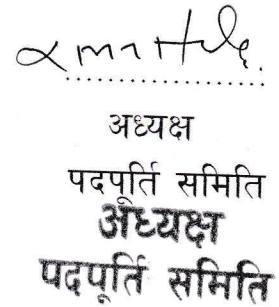 अध्यक्ष
पदपूर्ति समिति
अध्यक्ष
पदपूर्ति समिति